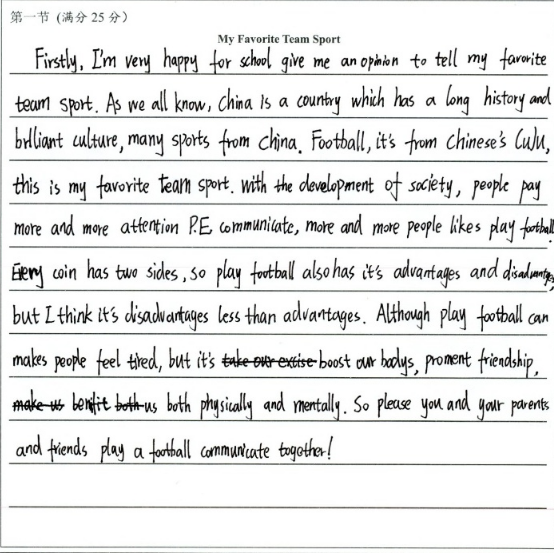 第一节 (满分 25 分)
My Favorite Team Sport
Firstly, I'm very happy for school give me an opinion to tell my favorite
team sport. As we all know, China is a country which has a long history and
brlliant culture, many sports from China. Football, it's from Chinese's CuJu,
this is my favorite team sport. With the development of society, people pay
more and more attention P.E communicate, more and more people likes play football.
Every coin has two sides, so play football also has it's advantages and disadvantages,
but I think it's disadvantages less than advantages. Although play football can
makes people feel tired, but it's take our excise boost our bodys, proment friendship,
make us benfit both us both physically and mentally. So please you and your parents
and friends play a football communicate together!